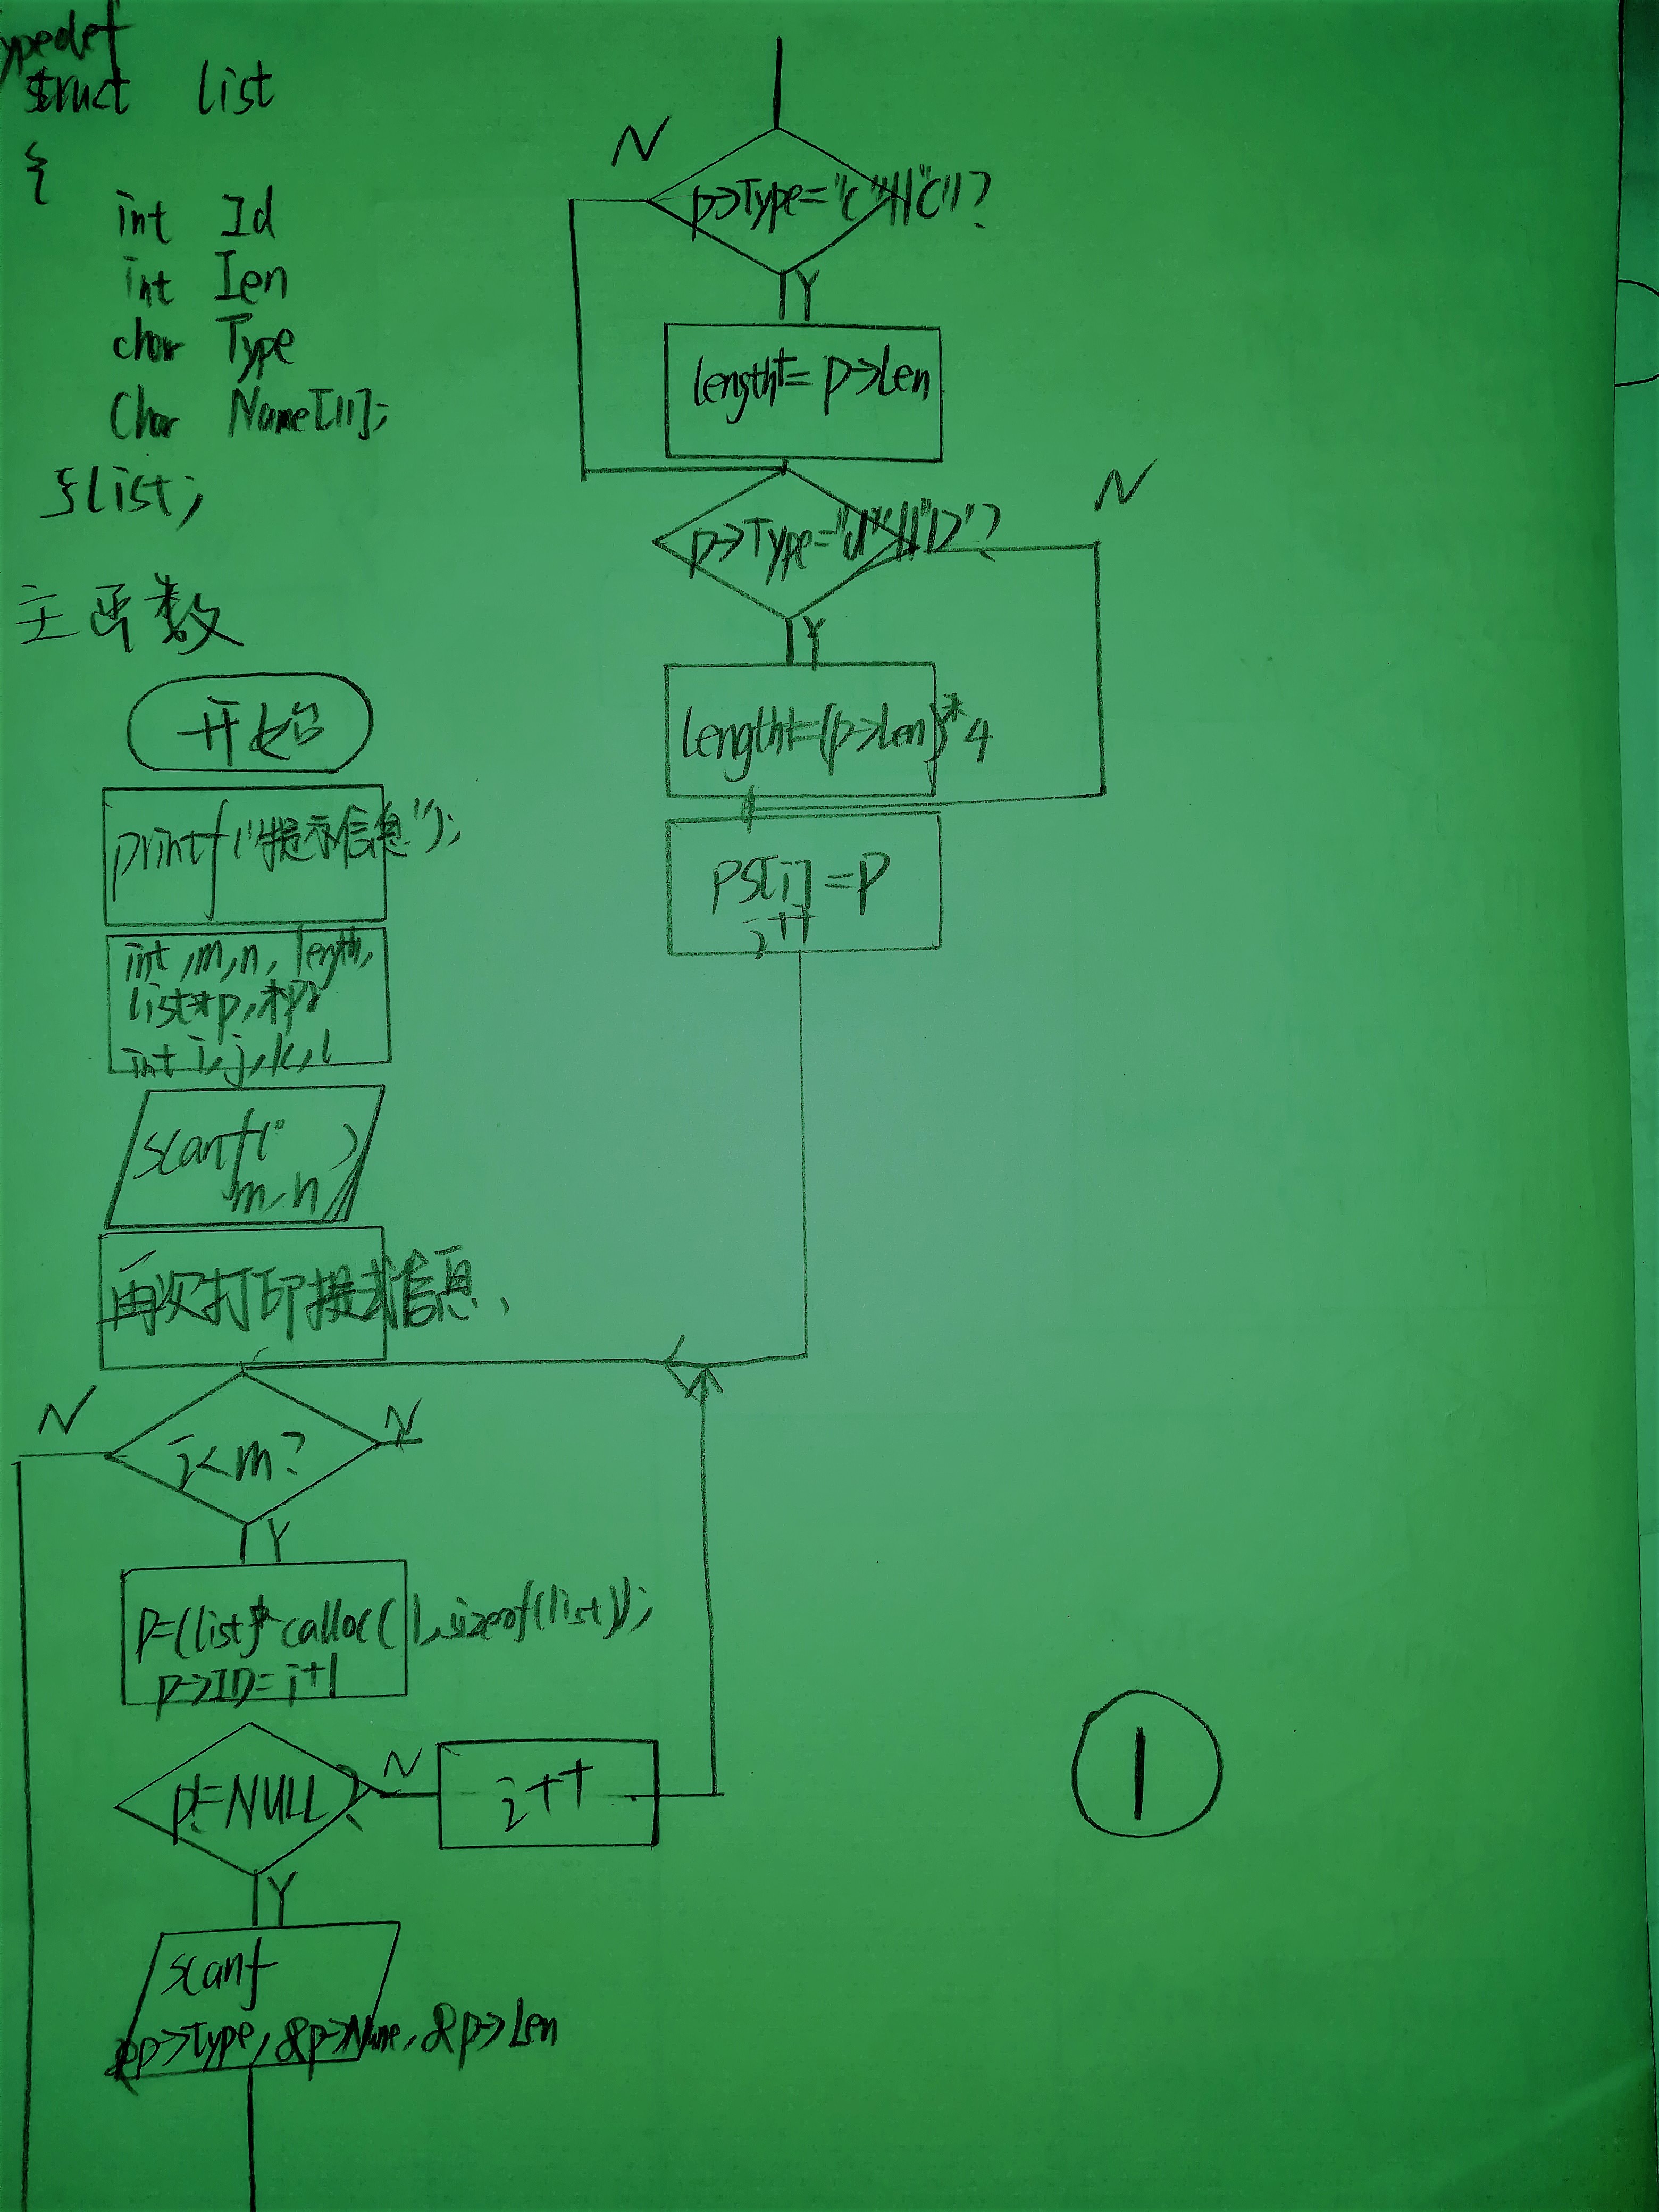 ypedef
struct list
{
int Id
int Ien
char Type
Char Name[11];
}list;
主函数
开始
printf("提示信息");
int ,m,n, length,
list*p,*ps
int i,j,k,l
scanf("
m,n)
再次打印提示信息,
i<m?
N
N
Y
p=(list)*calloc(1,sizeof(list));
p->ID=i+1
p!=NULL?
N
i++
Y
scanf
&p->Type,&p->Name,&p->Len
N
p->Type="c"||"C"?
Y
length+=p->Len
N
p->Type="d"||"D"?
Y
length+=(p->Len)*4
ps[i]=p
i++
1